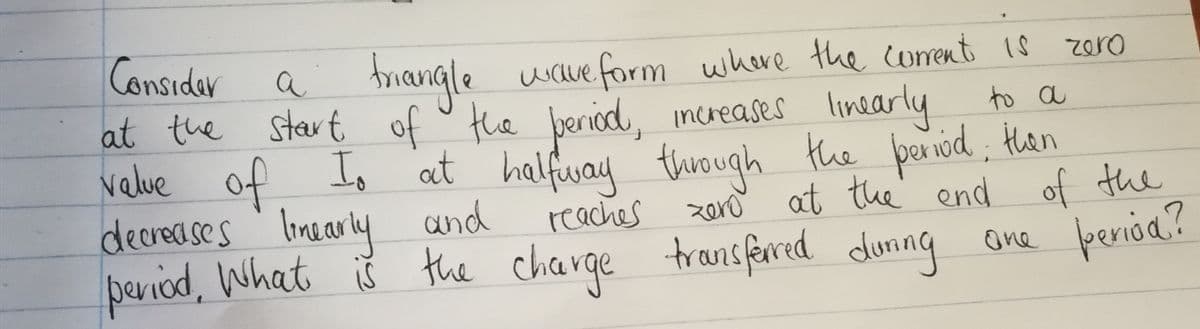 Consider a triangle waveform where the current is zero
at the start of the period, increases linearly to a
value of I₀ at halfway through the period, then
decreases linearly and reaches zero at the end of the
period. What is the charge transferred during one period?